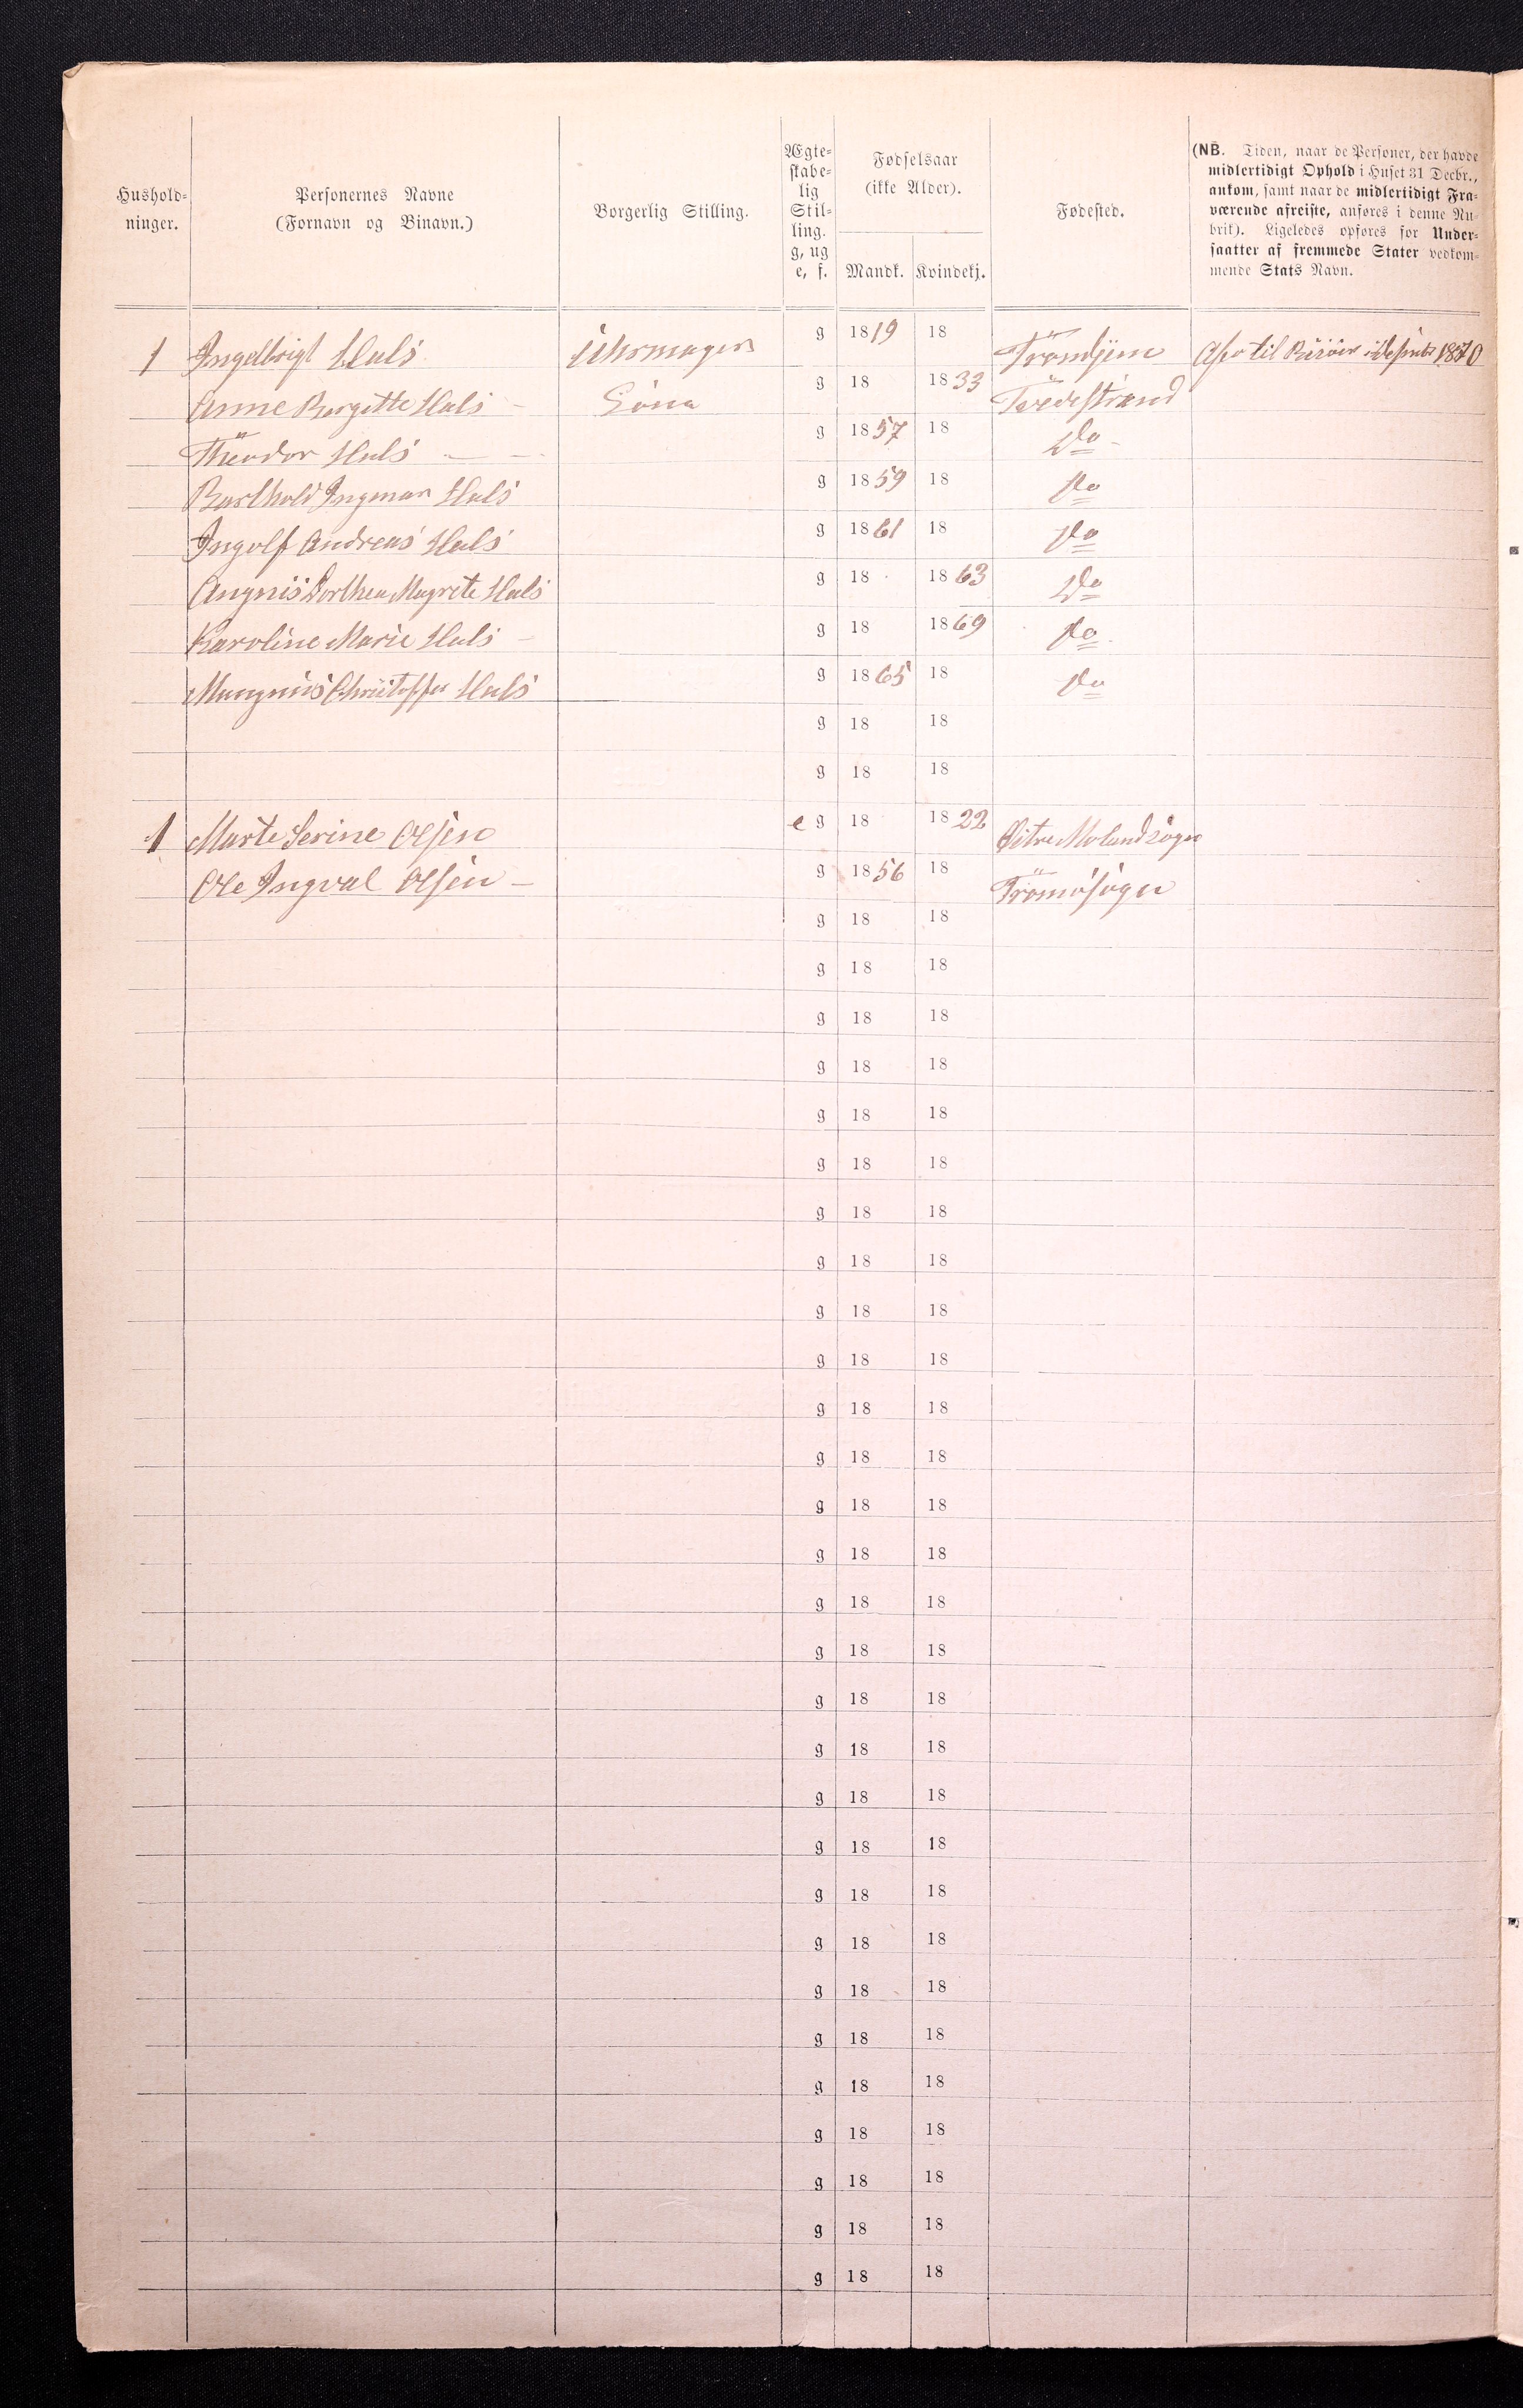 Hushold-
ninger.
Personernes Navne
(Fornavn og Binavn.)
Borgerlig Stilling.
Ægte-
skabe-
lig
Stil-
ling.
g, ug
e, f.
Fødselsaar
(ikke Alder).
Mandk. Kvindekj.
Fødested.
(NB. Tiden, naar de Personer, der havde
midlertidigt Ophold i Huset 31 Decbr.,
ankom, samt naar de midlertidigt Fra-
værende afreiste, anføres i denne Ru-
brik). Ligeledes opføres for Under-
saatter af fremmede Stater vedkom-
mende Stats Navn.
1 Ingelbrigt Hals Uhrmager g 1819 18 Trondjem til 1870
Anne Borgette Hals Kona g 18 1833 Tvedestrand
Theodor Hals g 1857 18 Do
Barthold Ingman Hals g 1859 18 Do
Ingolf Andreas Hals g 1861 18 Do
Angnis Dorthea Magrete Hals g 18 1863 Do
Karoline Marie Hals g 18 1869 Do
Mangnus Christoffer Hals g 1865 18 Do
g 18 18
g 18 18
1 Marte Serine Olsen e g 18 1822 Øitre Moland sogn
Ole Ingval Olsen g 1856 18 Tromøsogn
g 18 18
g 18 18
g 18 18
g 18 18
g 18 18
g 18 18
g 18 18
g 18 18
g 18 18
g 18 18
g 18 18
g 18 18
g 18 18
g 18 18
g 18 18
g 18 18
g 18 18
g 18 18
g 18 18
g 18 18
g 18 18
g 18 18
g 18 18
g 18 18
g 18 18
g 18 18
g 18 18
g 18 18
g 18 18